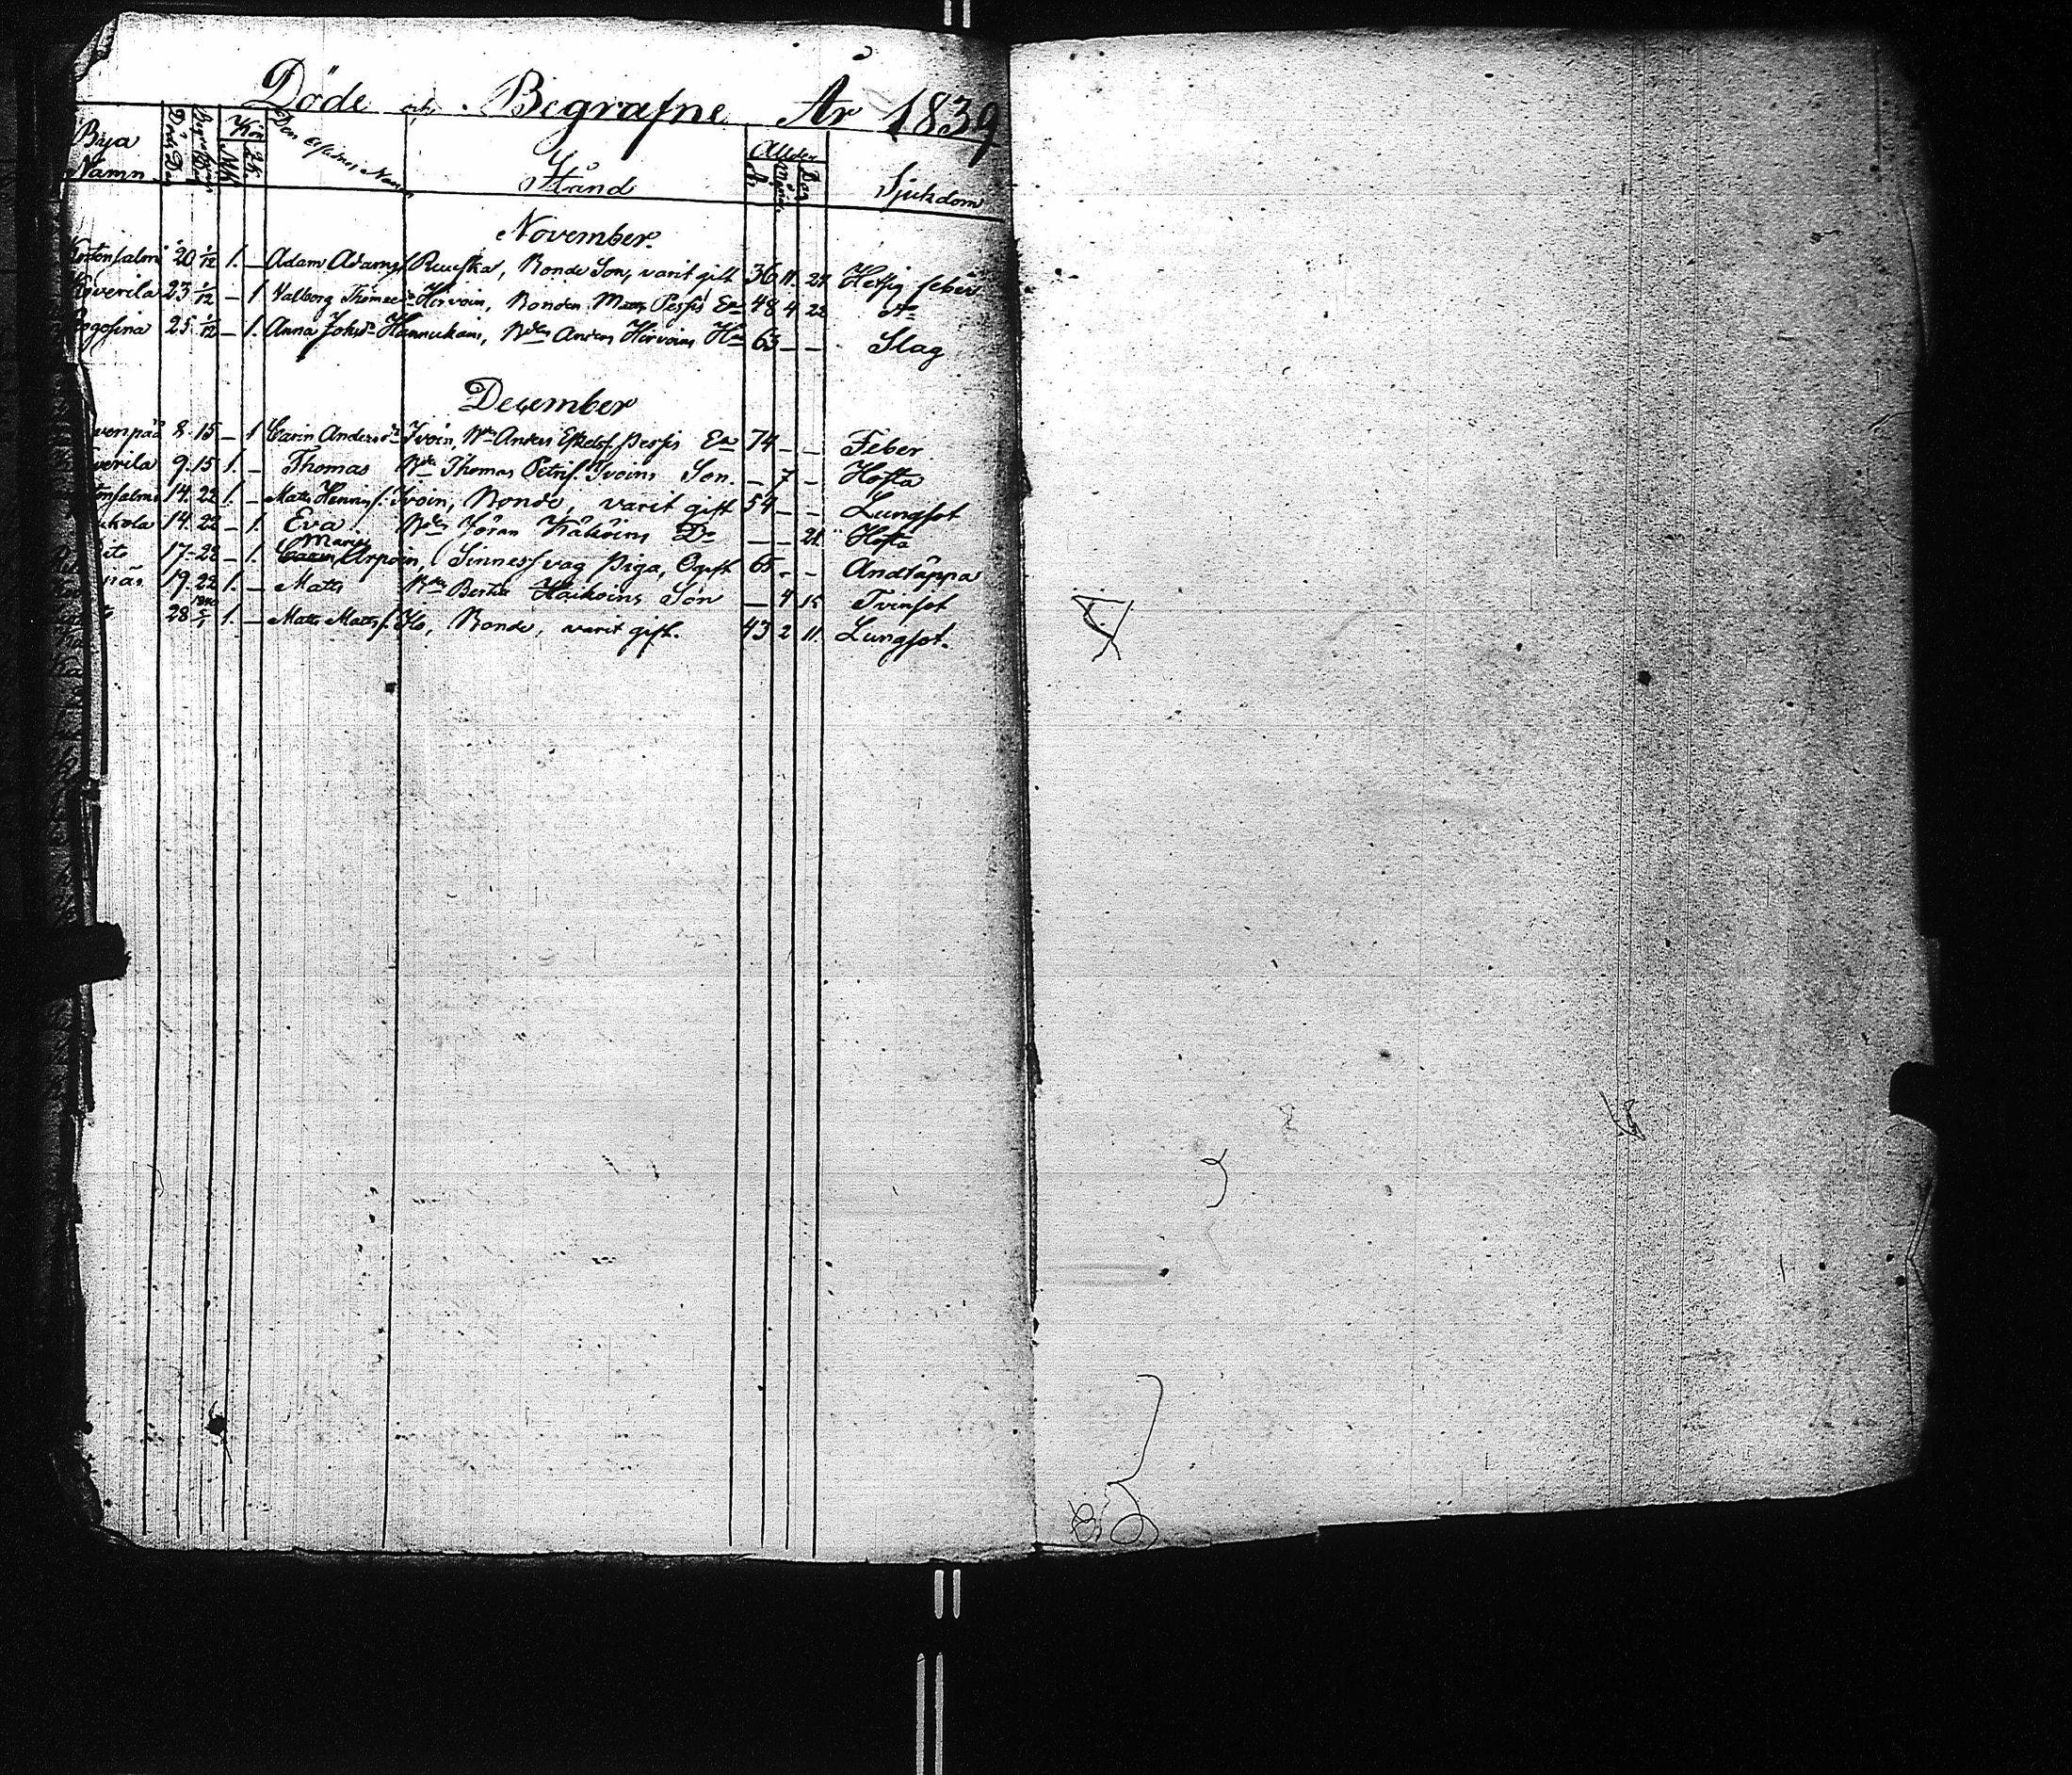 Döde och Begrafne År 1839
Bya Namn Kön Den Aflidnes Namn Stånd Ålder År Dag Sjukdom
November.
20 1/12 1. — Adam Adamss. Ruuska, Bonde Son, varit gift 36 11 Hetsig feber
Koverila 23 1/12 — 1 Valborg Hirvoin, Bonden Matts Persis Ea 48 4 28 Do
25 1/12 — 1. Anna Johsdr Hannukain, Bdn Anders Hirvoins Hu 63 — — Slag
December
8. 15 — 1 Carin Andersdr Ivoin, Bdn Anders Eskelss. Persis Ea 74 — — Feber
verila 9. 15 1. — Thomas Bdn Thomas Petris. Ivoins Son. — 7 — Hosta
14. 22 1. — Matts Henrics. Ivoin, Bonde, varit gift 54 — — Lungsot
14. 22 — 1. Eva Bdns Jöran Käköins Dr — — 21 Hosta
17. 22 — 1. Maria Arpoin, Sinnessvag Piga, Ogift 65 - - Andtäppa
19. 22 1. — Matts Bdn Bertil Haikoins Son — 4 15 Tvinsot
28 1. — Matts Mattss. Ilo, Bonde, varit gift. 43 2 11 Lungsot.